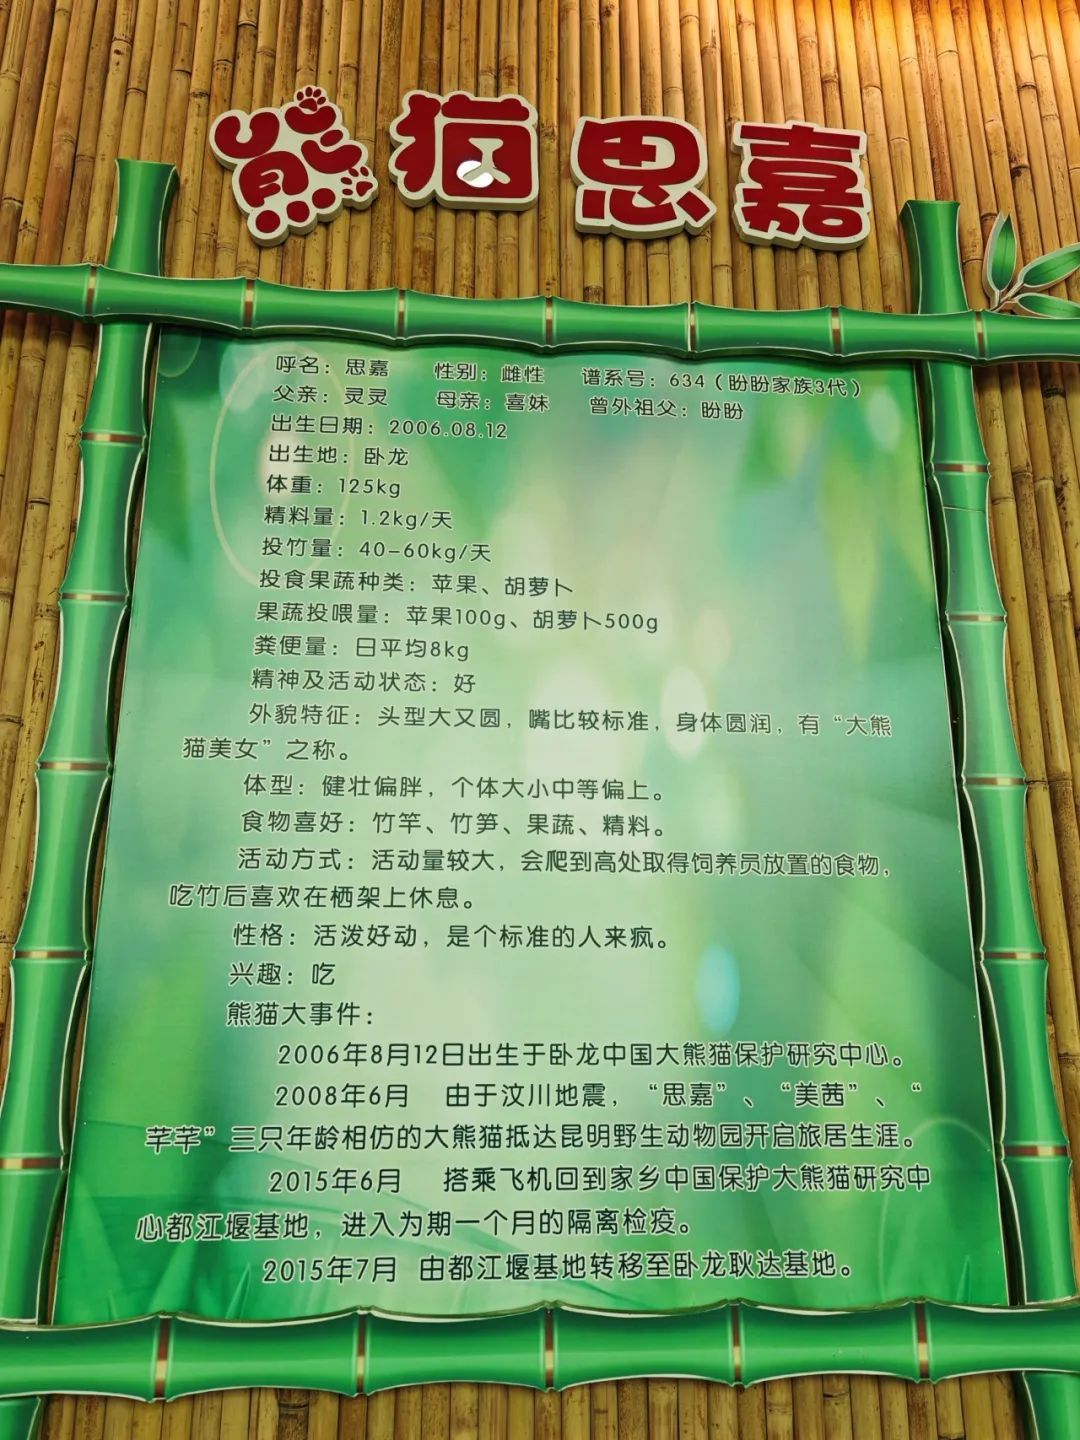 熊猫思嘉
呼名：思嘉 性别：雌性 谱系号：634（盼盼家族3代）
父亲：灵灵 母亲：喜妹 曾外祖父：盼盼
出生日期：2006.08.12
出生地：卧龙
体重：125kg
精料量：1.2kg/天
投竹量：40-60kg/天
投食果蔬种类：苹果、胡萝卜
果蔬投喂量：苹果100g、胡萝卜500g
粪便量：日平均8kg
精神及活动状态：好
外貌特征：头型大又圆，嘴比较标准，身体圆润，有“大熊
猫美女”之称。
体型：健壮偏胖，个体大小中等偏上。
食物喜好：竹竿、竹笋、果蔬、精料。
活动方式：活动量较大，会爬到高处取得饲养员放置的食物，
吃竹后喜欢在栖架上休息。
性格：活泼好动，是个标准的人来疯。
兴趣：吃
熊猫大事件：
2006年8月12日出生于卧龙中国大熊猫保护研究中心。
2008年6月 由于汶川地震，“思嘉”、“美茜”、“
芊芊”三只年龄相仿的大熊猫抵达昆明野生动物园开启旅居生涯。
2015年6月 搭乘飞机回到家乡中国保护大熊猫研究中
心都江堰基地，进入为期一个月的隔离检疫。
2015年7月 由都江堰基地转移至卧龙耿达基地。